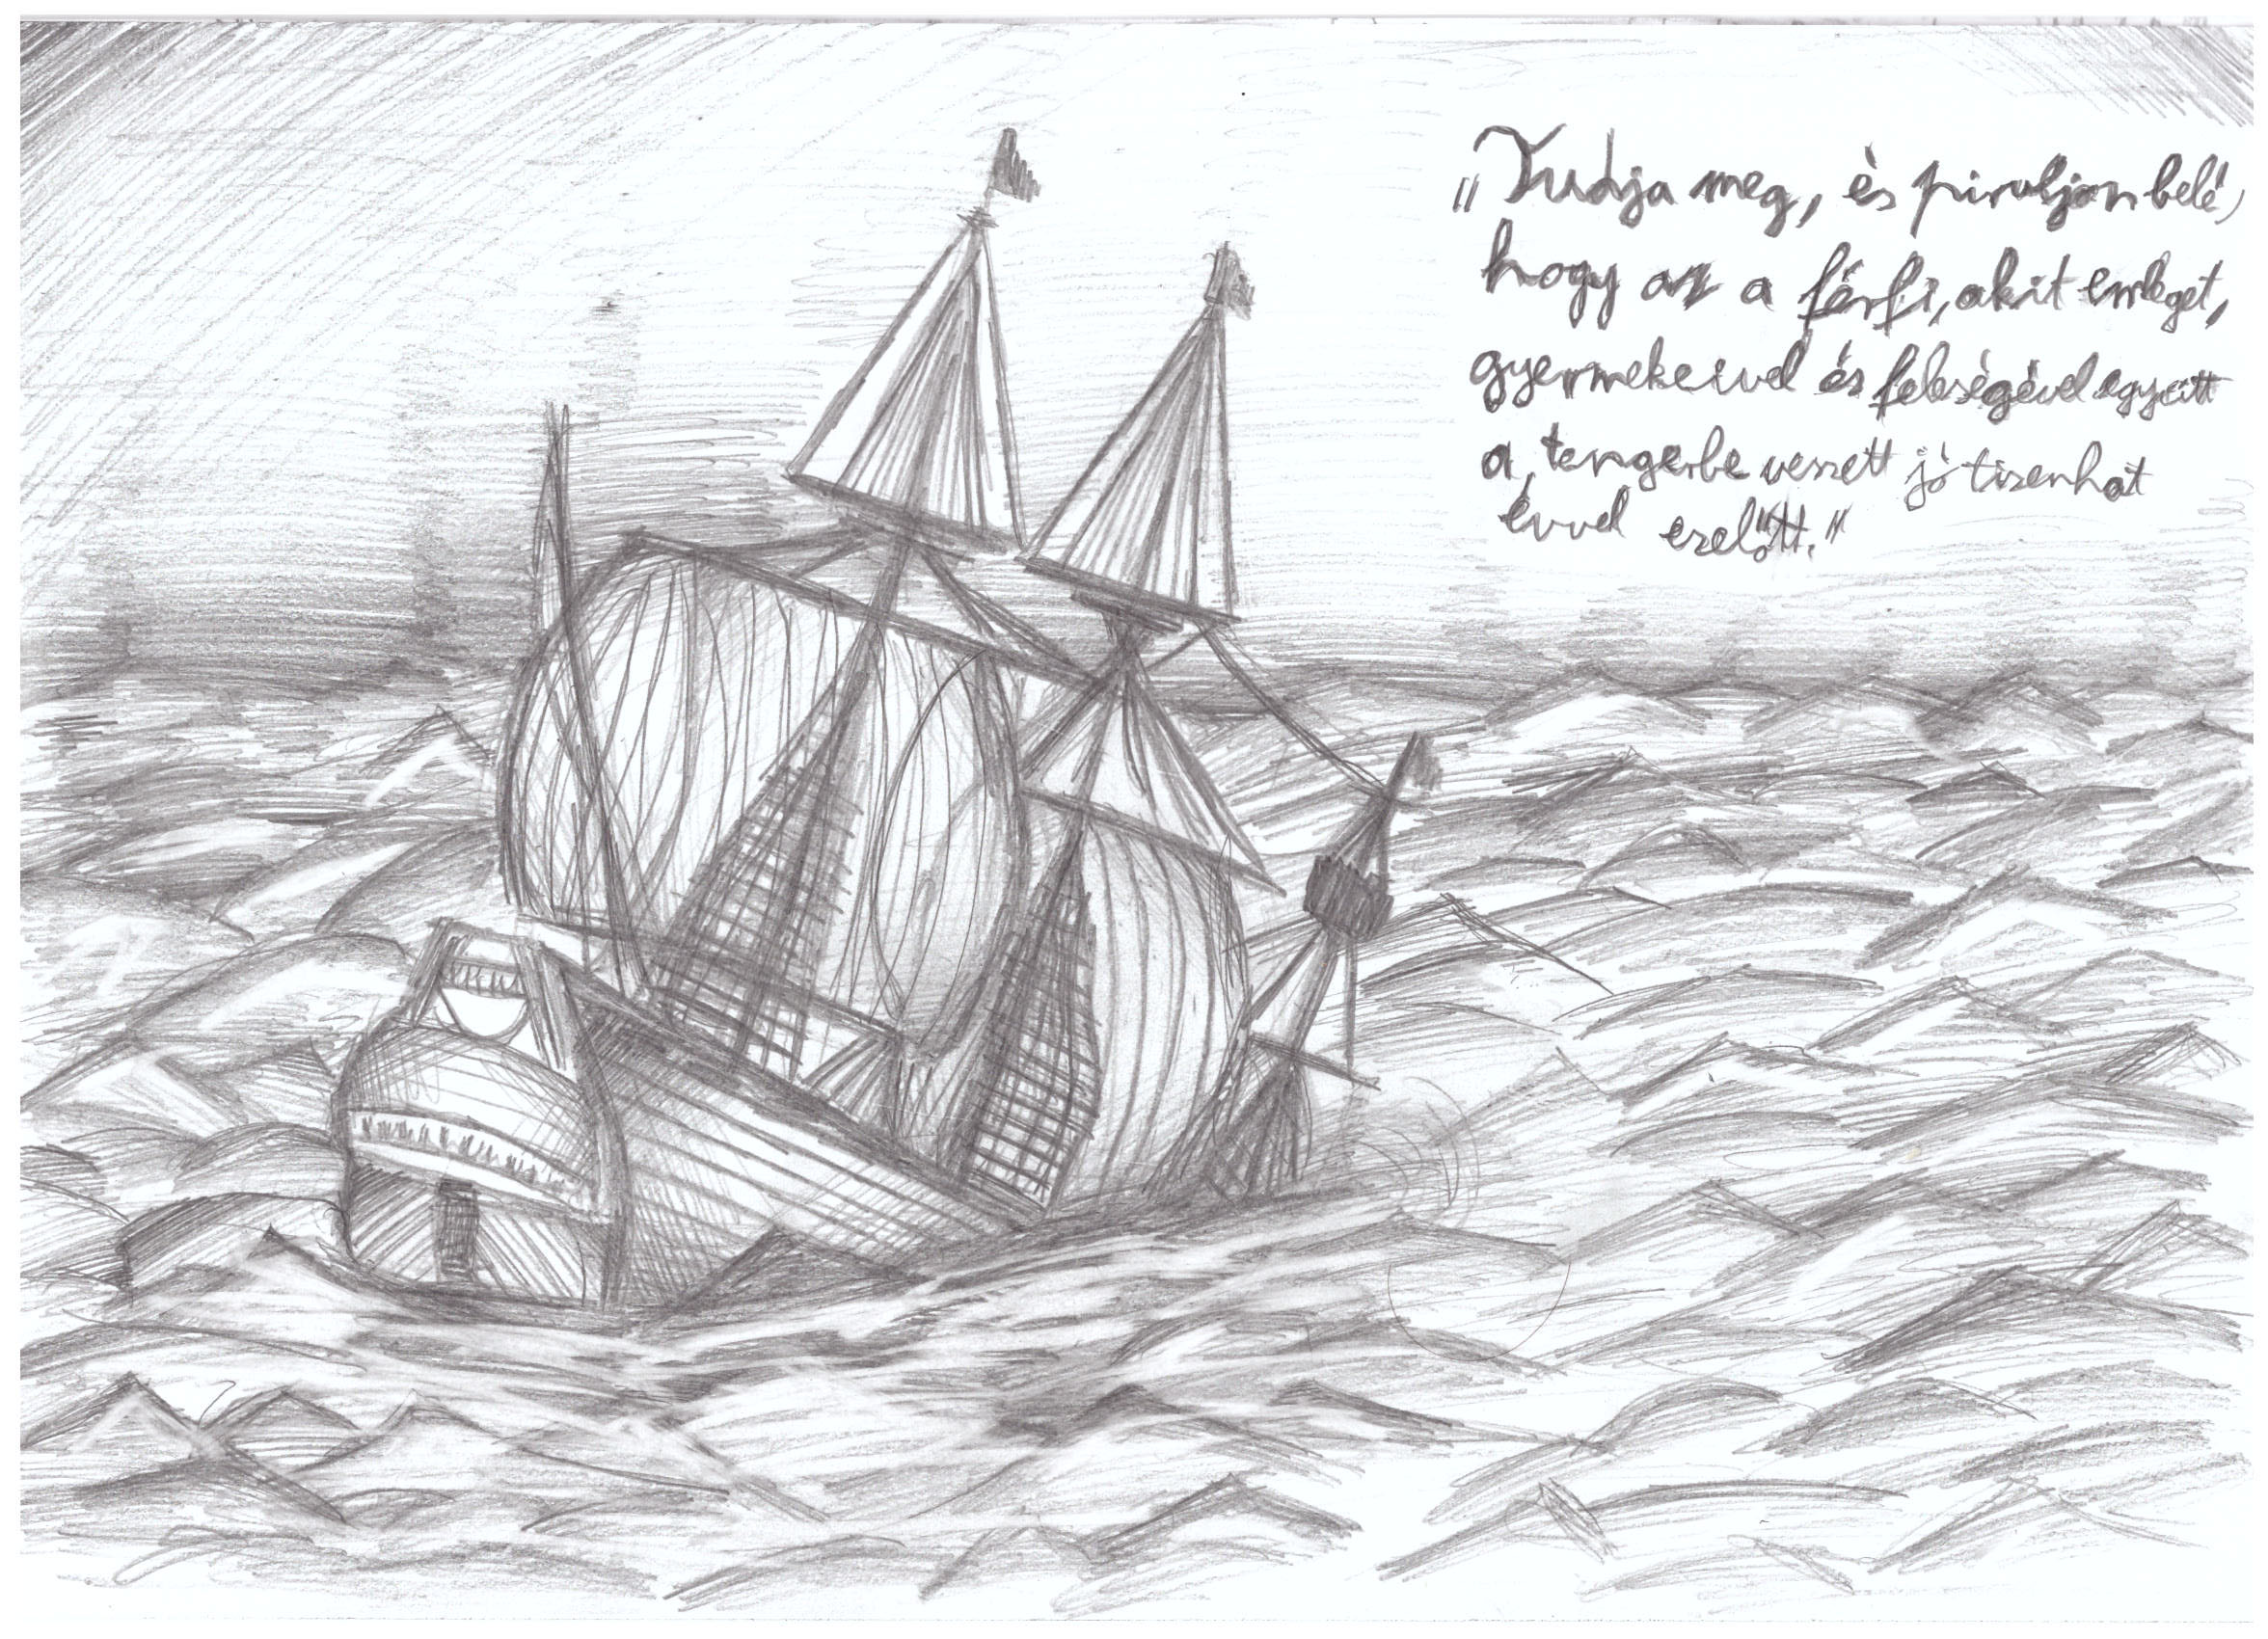 „Tudja meg, és piruljon belé,
hogy az a férfi, akit emleget,
gyermekeivel és feleségével együtt
a tengerbe veszett jó tizenhat
évvel ezelőtt."